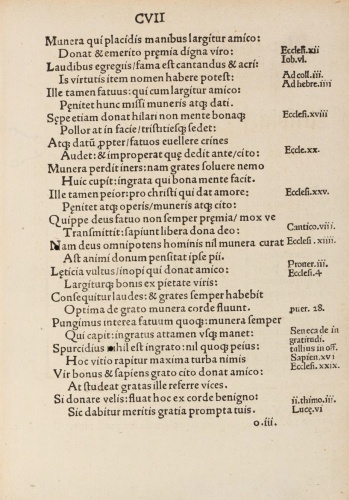 CVII
Munera qui placidis manibus largitur amico:
Donat & emerito pręmia digna viro:
Ecclesi.xii
Laudibus egregiis/fama est cantandus & acri:
Iob.vi.
Is virtutis item nomen habere potest:
Ad coll.iii.
Ille tamen fatuus: qui cum largitur amico:
Ad hebre.iiii
Pęnitet hunc missi muneris atq; dati.
Sępe etiam donat hilari non mente bonaq;
Ecclesi.xviii
Pollor at in facie/tristitiesq; sedet:
Atq; datū ꝓpter/fatuos euellere crines
Audet: & improperat quę dedit ante/cito:
Eccle.xx.
Munera perdit iners: nam grates soluere nemo
Huic cupit: ingrata qui bona mente facit.
Ille tamen peior: pro christi qui dat amore:
Ecclesi.xxv.
Pęnitet atq; operis/muneris atq; cito:
Quippe deus fatuo non semper pręmia/mox ve
Transmittit: sapiunt libera dona deo:
Cantico.viii.
Nam deus omnipotens hominis nil munera curat
Ecclesi.xiiii.
Ast animi donum pensitat ipse pii.
Lęticia vultus/inopi qui donat amico:
Proner.iii.
Ecclesi.4
Largiturq; bonis ex pietate viris:
Consequitur laudes: & grates semper habebit
Optima de grato munera corde fluunt.
puer. 28.
Pungimus interea fatuum quoq;: munera semper
Qui capit: ingratus attamen vsq; manet:
Seneca de in
gratitudi.
Spurcidius nihil est ingrato: nil quoq; peius:
tullius in off.
Hoc vitio rapitur maxima turba nimis
Sapien.xvi
Vir bonus & sapiens grato cito donat amico:
Ecclesi.xxix.
At studeat gratas ille referre vices.
Si donare velis: fluat hoc ex corde benigno:
ii.thimo.iii.
Sic dabitur meritis gratia prompta tuis.
Lucę.vi
o.iii.